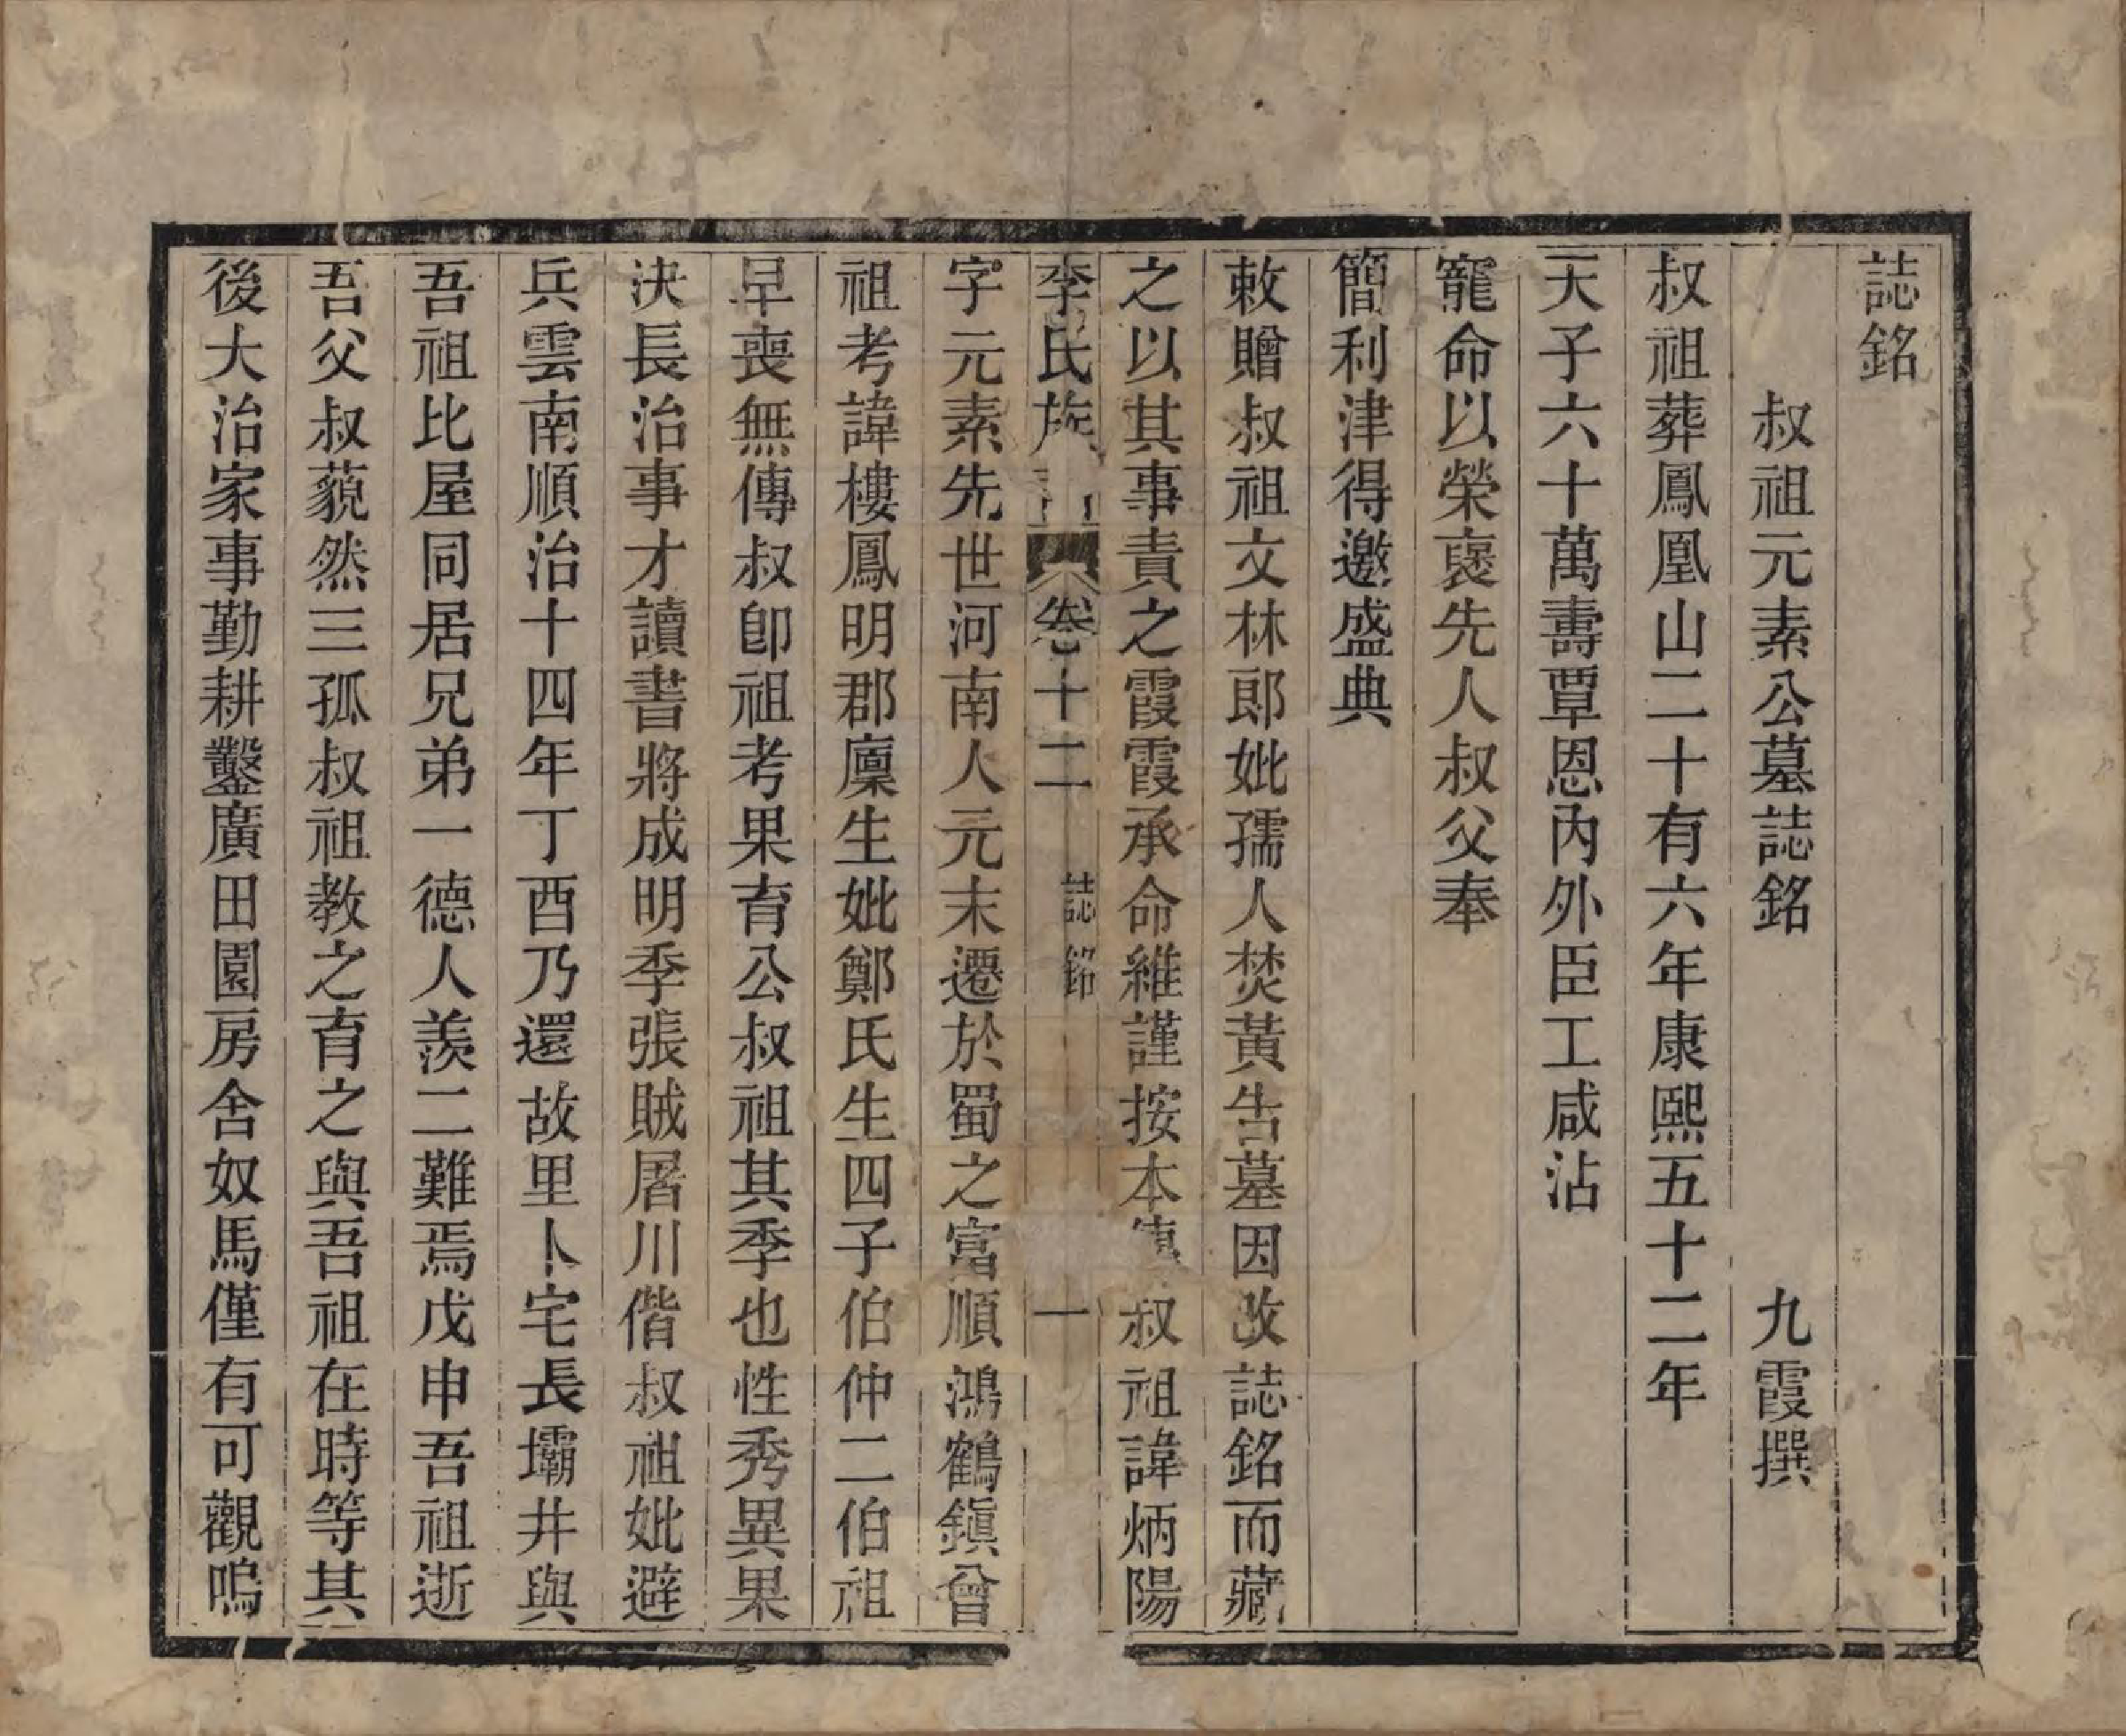 誌銘
叔祖元素公墓誌銘 九霞撰
叔祖葬鳳凰山二十有六年康熙五十二年
天子六十萬壽覃恩內外臣工咸沾
寵命以榮褒先人叔父奉
簡利津得邀盛典
敕贈叔祖文林郎妣孺人焚黃告墓因改誌銘而藏
之以其事責之霞霞承命維謹按本 叔祖諱炳陽
李氏族 卷十二 誌銘 一
字元素先世河南人元末遷於蜀之富順鴻鶴鎮曾
祖考諱樓鳳明郡廩生妣鄭氏生四子伯仲二伯祖
早喪無傳叔卽祖考果育公叔祖其季也性秀異果
決長治事才讀書將成明季張賊屠川偕叔祖妣避
兵雲南順治十四年丁酉乃還故里卜宅長壩井與
吾祖比屋同居兄弟一德人羨二難焉戊申吾祖逝
吾父叔藐然三孤叔祖教之育之與吾祖在時等其
後大治家事勤耕鑿廣田園房舍奴馬僅有可觀嗚